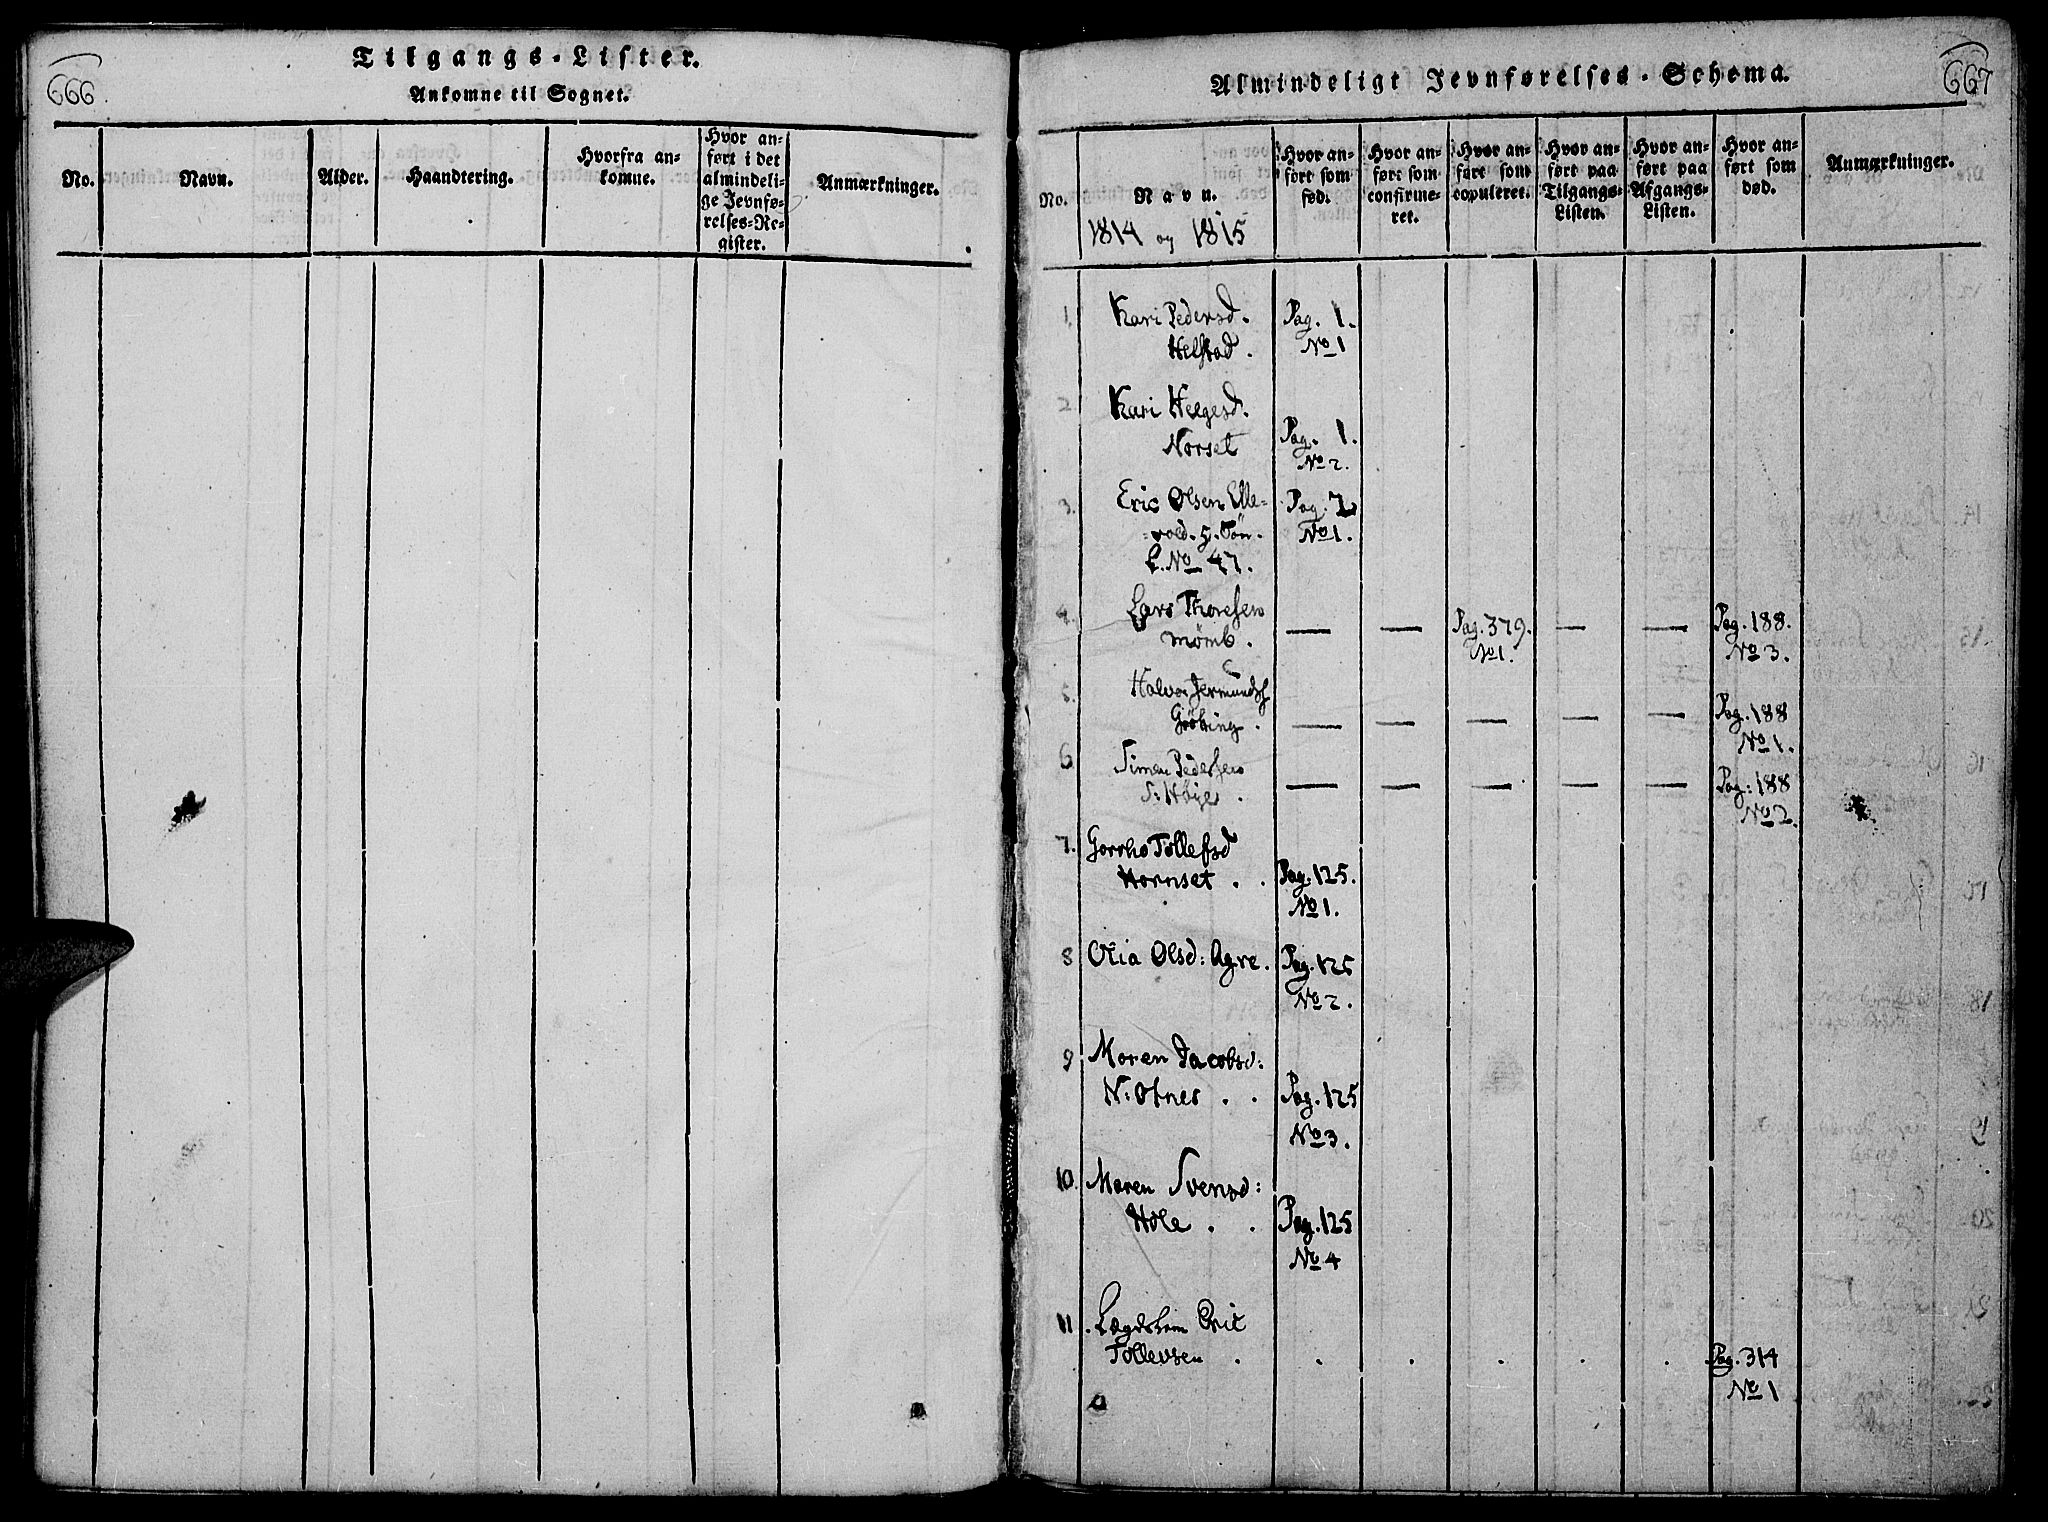 666
Tilgangs-Lister.
Ankomne til Sognet.
No.
Navn.
Alder.
Haandtering.
Hvorfra an-
komne.
Hvor an-
ført i det
almindeli-
ge Jevnfø-
relses-Re-
gister.
Anmærkninger.
667
Almindeligt Jevnførelses-Schema.
No.
Navn.
1814 og 1815
Hvor an-
ført som
fød.
Hvor an-
ført som
confirme-
ret.
Hvor an-
ført som
copuleret.
Hvor an-
ført paa
Tilgangs-
Listen.
Hvor an-
ført paa
Afgangs-
Listen.
Hvor an-
ført som
død.
Anmærkninger.
1. Kari Pedersd. Pag. 1.
Helstad. No 1
2 Kari Helgesd.
Norset Pag. 1.
No 2.
3. Eric Olsen Elle- Pag.
vold. No 1.
L. No 47.
4. Lars Thoresen — — Pag. 379. — — Pag. 188.
Mömb. No 1. No 3.
5. Halvor
— — — — — Pag. 188
No 1.
6 Simen Pedersen
S: Høye. — — — — — Pag: 188
No 2.
7. Gorrho Tollefsd
Hornset . . Pag. 125.
No 1.
8 Olia Olsd: Agre. Pag. 125
No 2.
9 Maren Jacobsd:
N: Otnes . . Pag. 125
No 3.
10. Maren Svensd:
Hole . . Pag. 125
No 4
11. Lægdslem Eric
Tollevsen . . . . . . Pag. 314
No 1